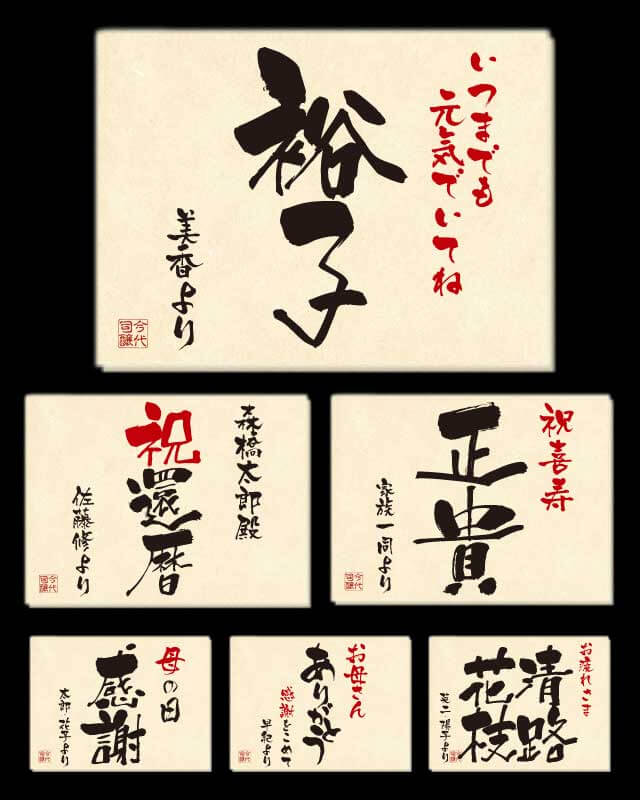 いつまでも
元気でいてね
裕子
美香より
今代
司醸
森橋太郎殿
祝
還暦
佐藤修より
今代
司醸
祝喜寿
正貴
家族一同より
今代
司醸
母の日
感謝
太郎・花子より
今代
司醸
お母さん
ありがとう
感謝をこめて
早紀より
今代
司醸
お疲れさま
清路
花枝
英二・陽子より
今代
司醸